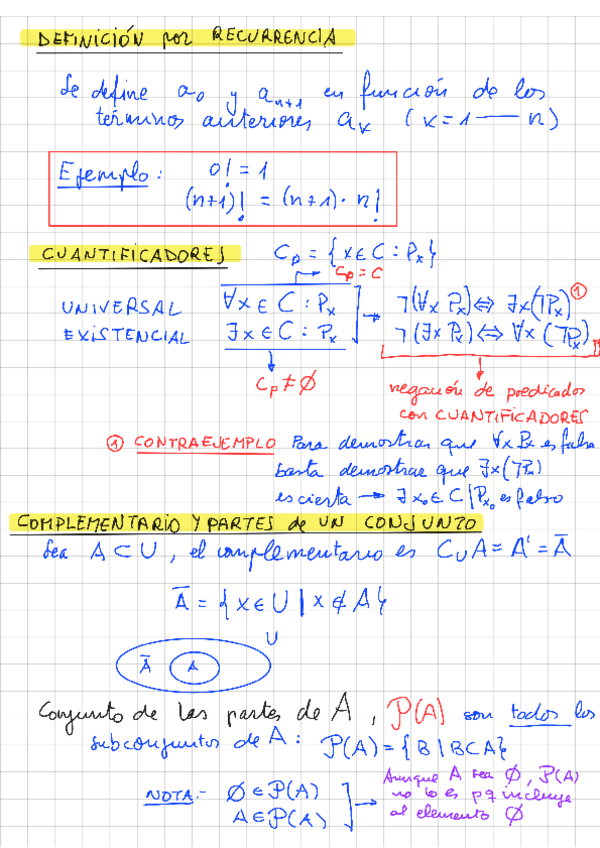 DEFINICIÓN por RECURRENCIA
Se define a₀ y aₙ₊₁ en función de los
términos anteriores aₖ (k=1 — n)
Ejemplo: 0! = 1
(n+1)! = (n+1)· n!
CUANTIFICADORES Cₚ = {x∈C : Pₓ}
Cₚ = C
UNIVERSAL ∀x∈C : Pₓ → ¬(∀x Pₓ)⇔ ∃x(¬Pₓ) ①
EXISTENCIAL ∃x∈C : Pₓ ¬(∃x Pₓ)⇔ ∀x (¬Pₓ)
Cₚ ≠ ∅ negación de predicados
con CUANTIFICADORES
① CONTRAEJEMPLO Para demostrar que ∀x Pₓ es falsa
basta demostrar que ∃x(¬Pₓ)
es cierta → ∃x₀∈C | Pₓ₀ es falso
COMPLEMENTARIO Y PARTES de UN CONJUNTO
Sea A⊂U, el complementario es C_U A = A' = Ā
Ā = {x∈U | x∉A}
U
Ā A
Conjunto de las partes de A, P(A) son todos los
subconjuntos de A: P(A) = {B | B⊂A}
NOTA.- ∅∈P(A)
A∈P(A)
Aunque A sea ∅, P(A)
no lo es pq incluye
al elemento ∅